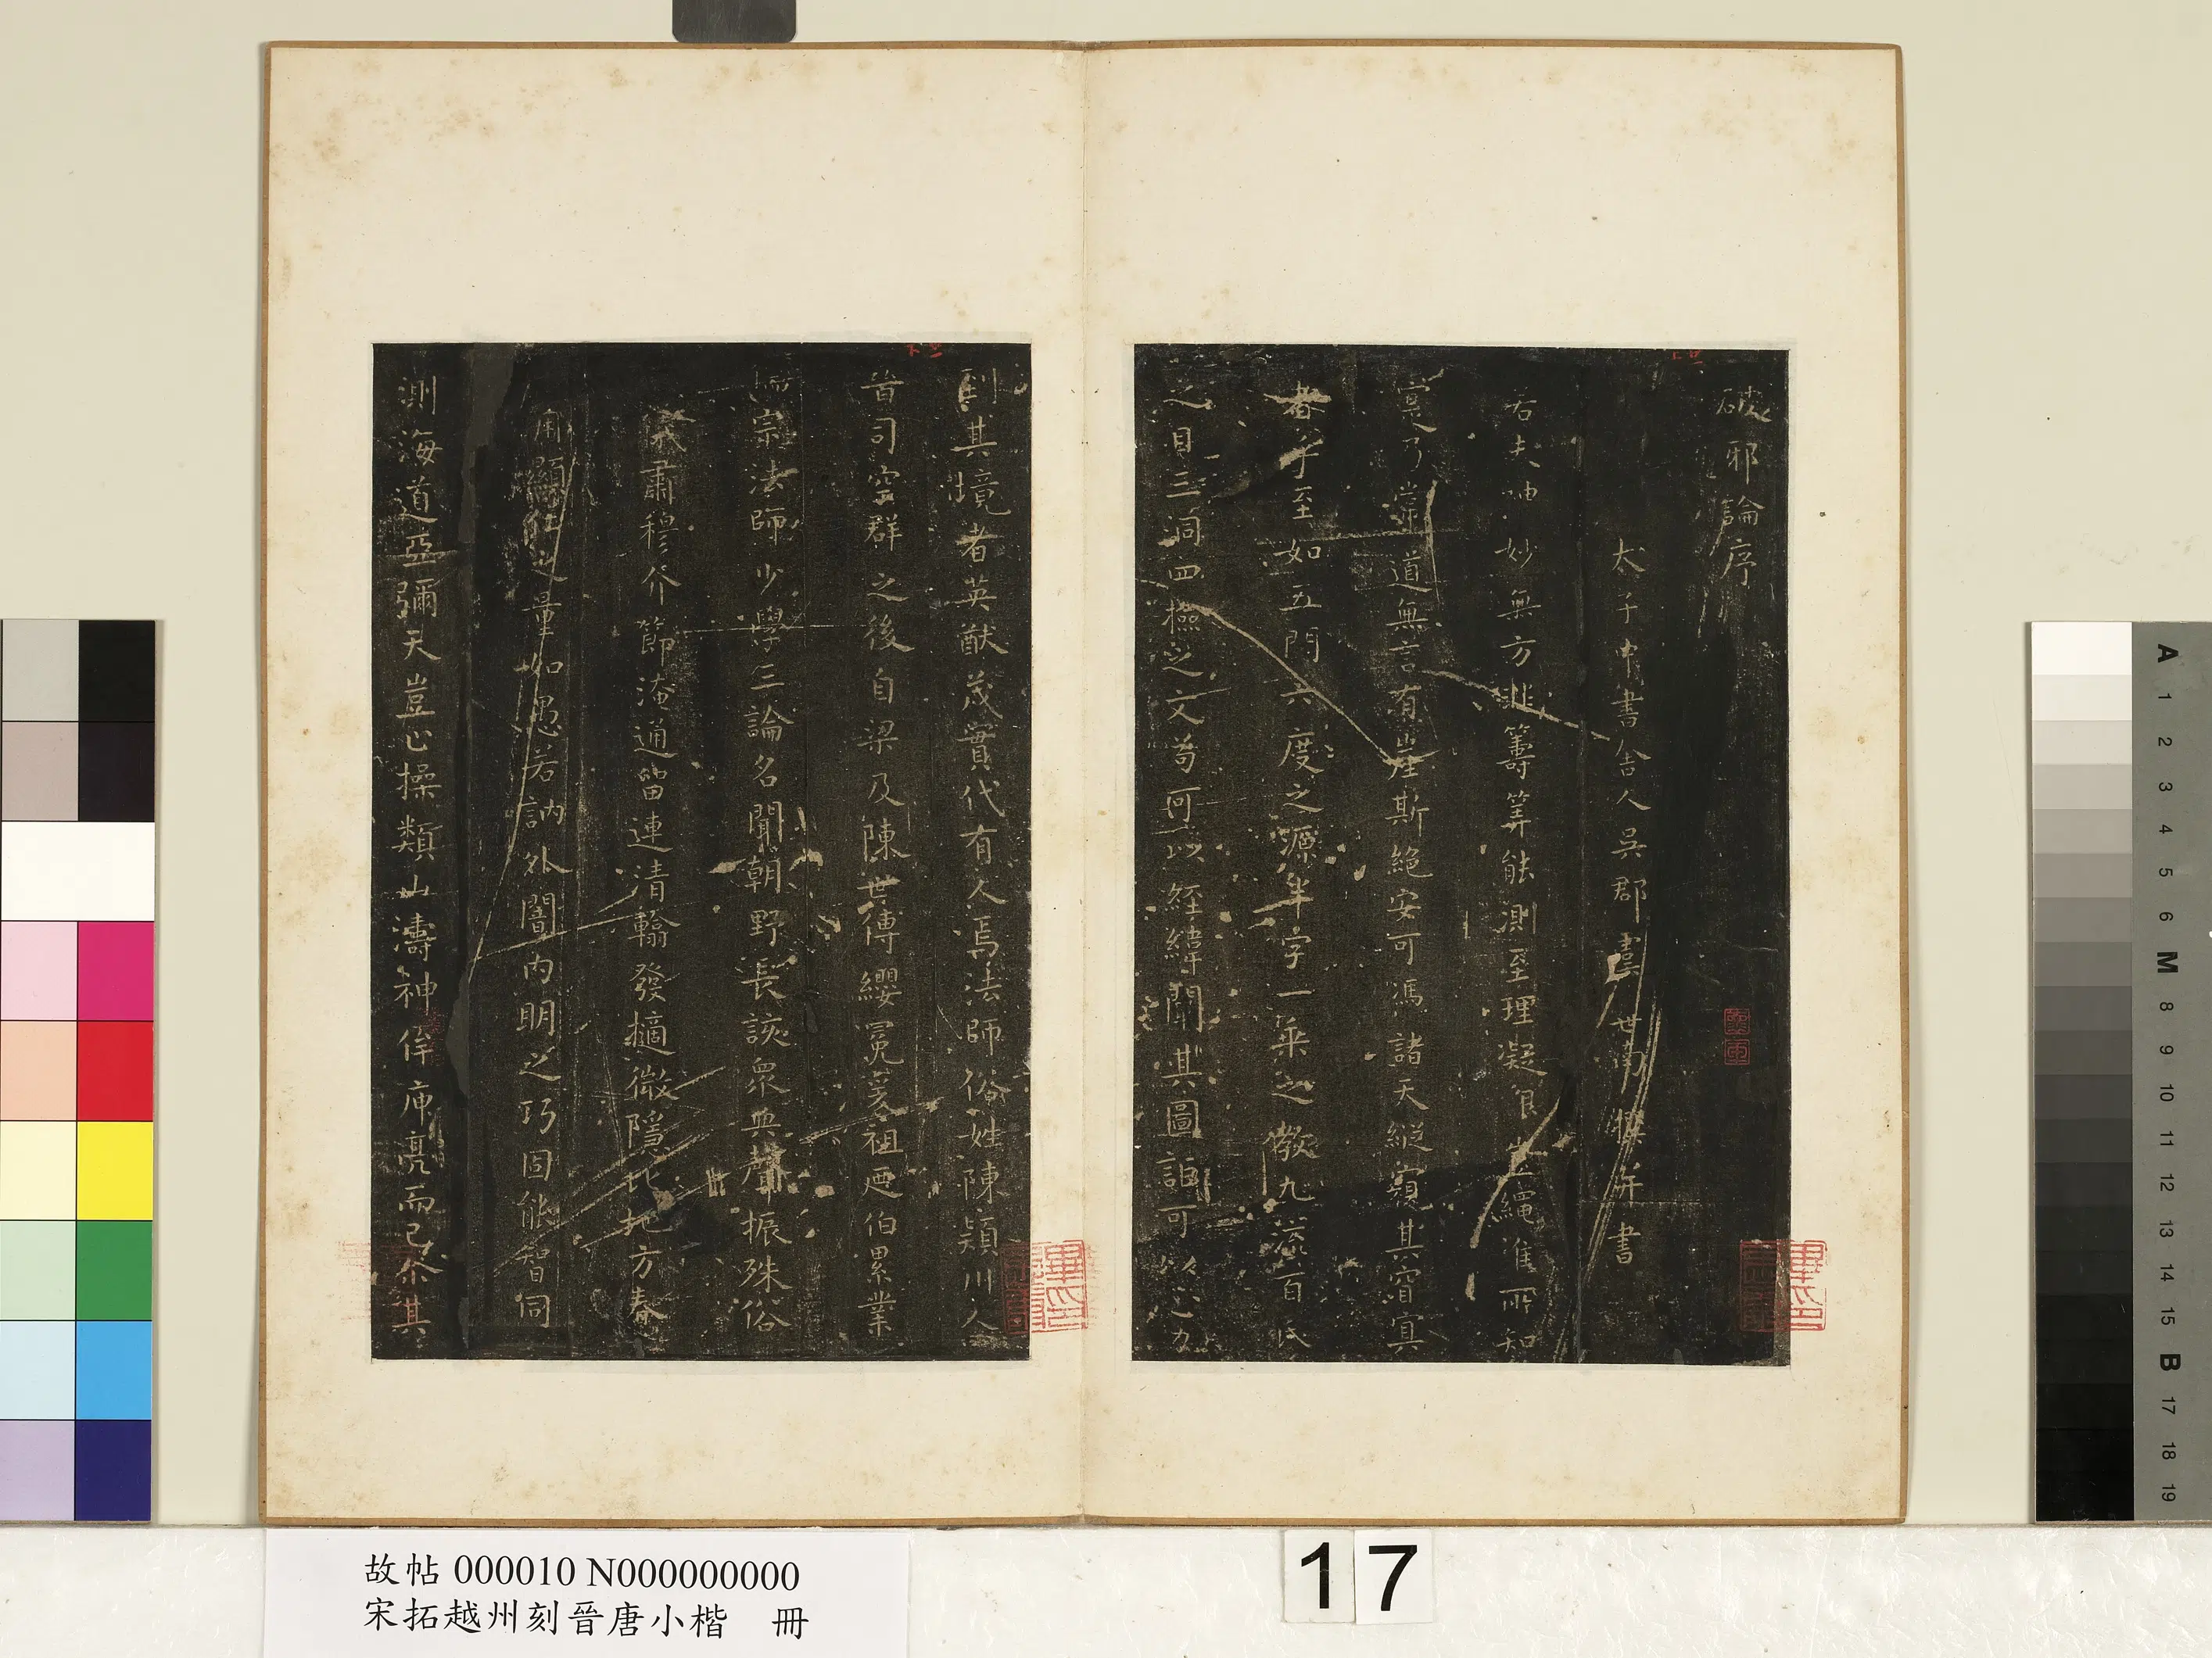 破邪論序
太子中書舍人吳郡虞世南撰并書
若夫神妙無方非籌筭能測至理凝邈豈繩准所知
寔乃常道無言有崖斯絕安可憑諸天縱窺其窅冥
者乎至如五門六度之源半字一乘之教九流百氏
之目三洞四檢之文苟可以經緯闡其圖詎可以心力
到其境者英猷茂實代有人焉法師俗姓陳潁川人
晉司空群之後自梁及陳世傳纓冕爰祖迺伯累業
儒宗法師少學三論名聞朝野長該眾典聲振殊俗
威肅穆介節淹通留連清翰發擿微隱比地方春
用顯仁之量如愚若訥外闇內明之巧固能智同
測海道亞彌天豈止操類山濤神侔庾亮而已爾其
故帖 000010 N000000000
宋拓越州刻晉唐小楷 冊
17
A 1 2 3 4 5 6 M 8 9 10 11 12 13 14 15 B 17 18 19